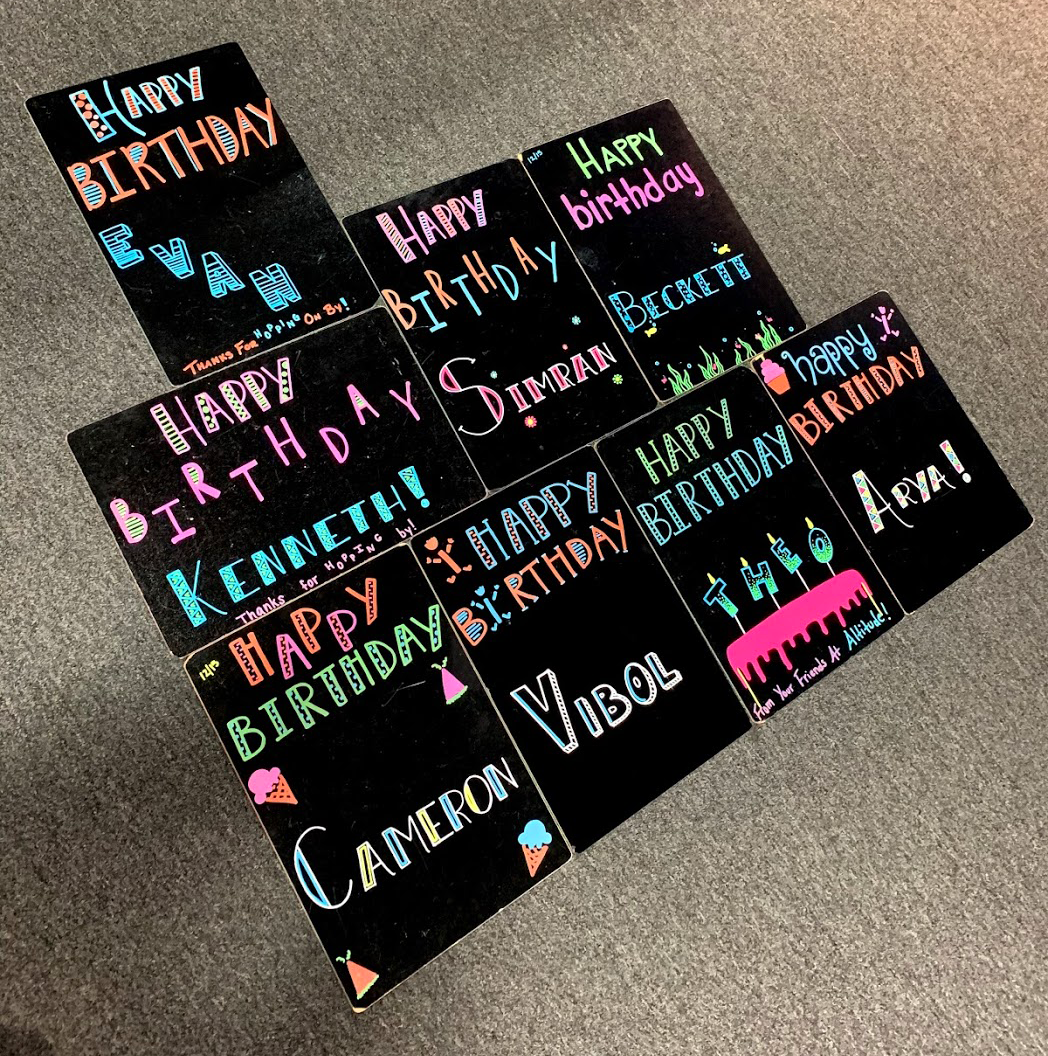 HAPPY
BIRTHDAY
EVAN
THANKS FOR HOPPING ON BY!
HAPPY
BIRTHDAY
SIMRAN
12/15
HAPPY
birthday
BECKETT
HAPPY
BIRTHDAY
KENNETH!
Thanks for HOPPING by!
HAPPY
BIRTHDAY
VIBOL
HAPPY
BIRTHDAY
THEO
From Your Friends At Altitude!
happy
BIRTHDAY
ARYA!
12/15
HAPPY
BIRTHDAY
CAMERON